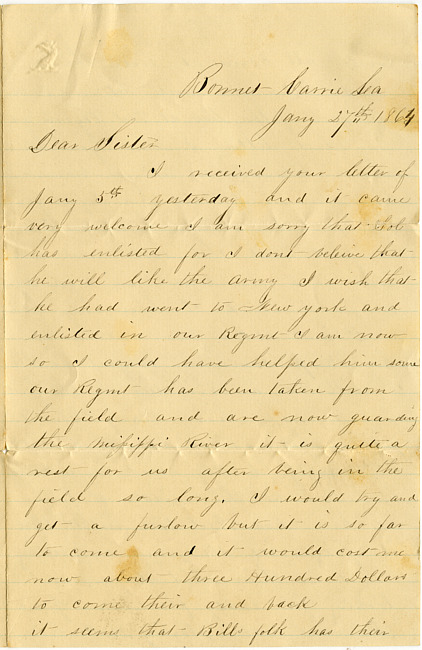 Bonnet Carrie La
Jany 27th 1864
Dear Sister
I received your letter of
Jany 5th yesterday and it came
very welcome I am sorry that Sol
has enlisted for I dont beleive that
he will like the army I wish that
he had went to New york and
enlisted in our Regmt I am now
so I could have helped him some
our Regmt has been taken from
the field and are now guarding
the Missippi River it is quite a
rest for us after being in the
field so long. I would try and
get a furlow but it is so far
to come and it would cost me
now about three Hundred Dollars
to come their and back
it seems that Bills folk has their